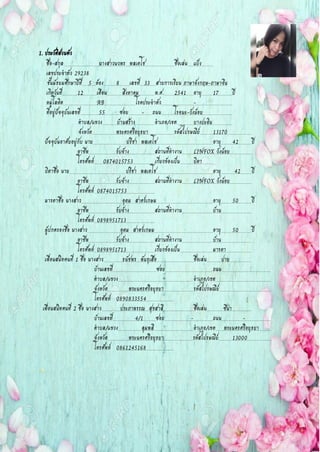 1. ประวัติส่วนตัว
ชื่อ-สกุล นางสาว พลเตโช ชื่อเล่น แป้ง
เลขประจำตัว 29238
ชั้นมัธยมศึกษาปีที่ 5 ห้อง 8 เลขที่ 33 สายการเรียน ภาษาอังกฤษ-ภาษาจีน
เกิดวันที่ 12 เดือน สิงหาคม พ.ศ. 2541 อายุ 17 ปี
หมู่โลหิต AB โรคประจำตัว -
ที่อยู่ปัจจุบันเลขที่ 55 ซอย - ถนน โรจนะ-วังน้อย
ตำบล/แขวง บ้านสร้าง อำเภอ/เขต บางปะอิน
จังหวัด พระนครศรีอยุธยา รหัสไปรษณีย์ 13170
ปัจจุบันอาศัยอยู่กับ นาย ปรีชา พลเตโช อายุ 42 ปี
อาชีพ รับจ้าง สถานที่ทำงาน LINFOX วังน้อย
โทรศัพท์ 0874015753 เกี่ยวข้องเป็น บิดา
บิดาชื่อ นาย ปรีชา พลเตโช อายุ 42 ปี
อาชีพ รับจ้าง สถานที่ทำงาน LINFOX วังน้อย
โทรศัพท์ 0874015753
มารดาชื่อ นางสาว อายุ 50 ปี
อาชีพ รับจ้าง สถานที่ทำงาน บ้าน
โทรศัพท์ 0898951713
ผู้ปกครองชื่อ นางสาว อายุ 50 ปี
อาชีพ รับจ้าง สถานที่ทำงาน บ้าน
โทรศัพท์ 0898951713 เกี่ยวข้องเป็น มารดา
เพื่อนสนิทคนที่ 1 ชื่อ นางสาว ชื่อเล่น
บ้านเลขที่ ซอย ถนน
ตำบล/แขวง - อำเภอ/เขต
จังหวัด พระนครศรีอยุธยา รหัสไปรษณีย์
โทรศัพท์ 0890833554
เพื่อนสนิทคนที่ 2 ชื่อ นางสาว ชื่อเล่น
บ้านเลขที่ 4/1 ซอย - ถนน -
ตำบล/แขวง อำเภอ/เขต พระนครศรีอยุธยา
จังหวัด พระนครศรีอยุธยา รหัสไปรษณีย์ 13000
โทรศัพท์ 0861245168